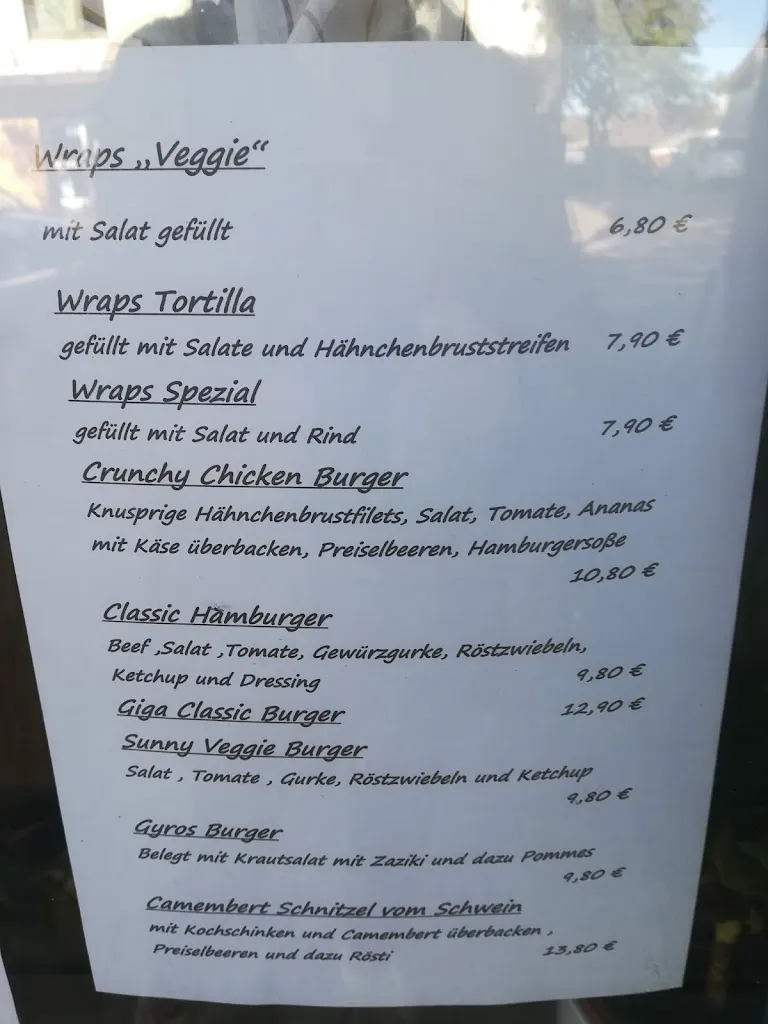 Wraps „Veggie“
mit Salat gefüllt 6,80 €
Wraps Tortilla
gefüllt mit Salate und Hähnchenbruststreifen 7,90 €
Wraps Spezial
gefüllt mit Salat und Rind 7,90 €
Crunchy Chicken Burger
Knusprige Hähnchenbrustfilets, Salat, Tomate, Ananas
mit Käse überbacken, Preiselbeeren, Hamburgersoße
10,80 €
Classic Hamburger
Beef ,Salat ,Tomate, Gewürzgurke, Röstzwiebeln,
Ketchup und Dressing 9,80 €
Giga Classic Burger 12,90 €
Sunny Veggie Burger
Salat , Tomate , Gurke, Röstzwiebeln und Ketchup
9,80 €
Gyros Burger
Belegt mit Krautsalat mit Zaziki und dazu Pommes
9,80 €
Camembert Schnitzel vom Schwein
mit Kochschinken und Camembert überbacken ,
Preiselbeeren und dazu Rösti 13,80 €